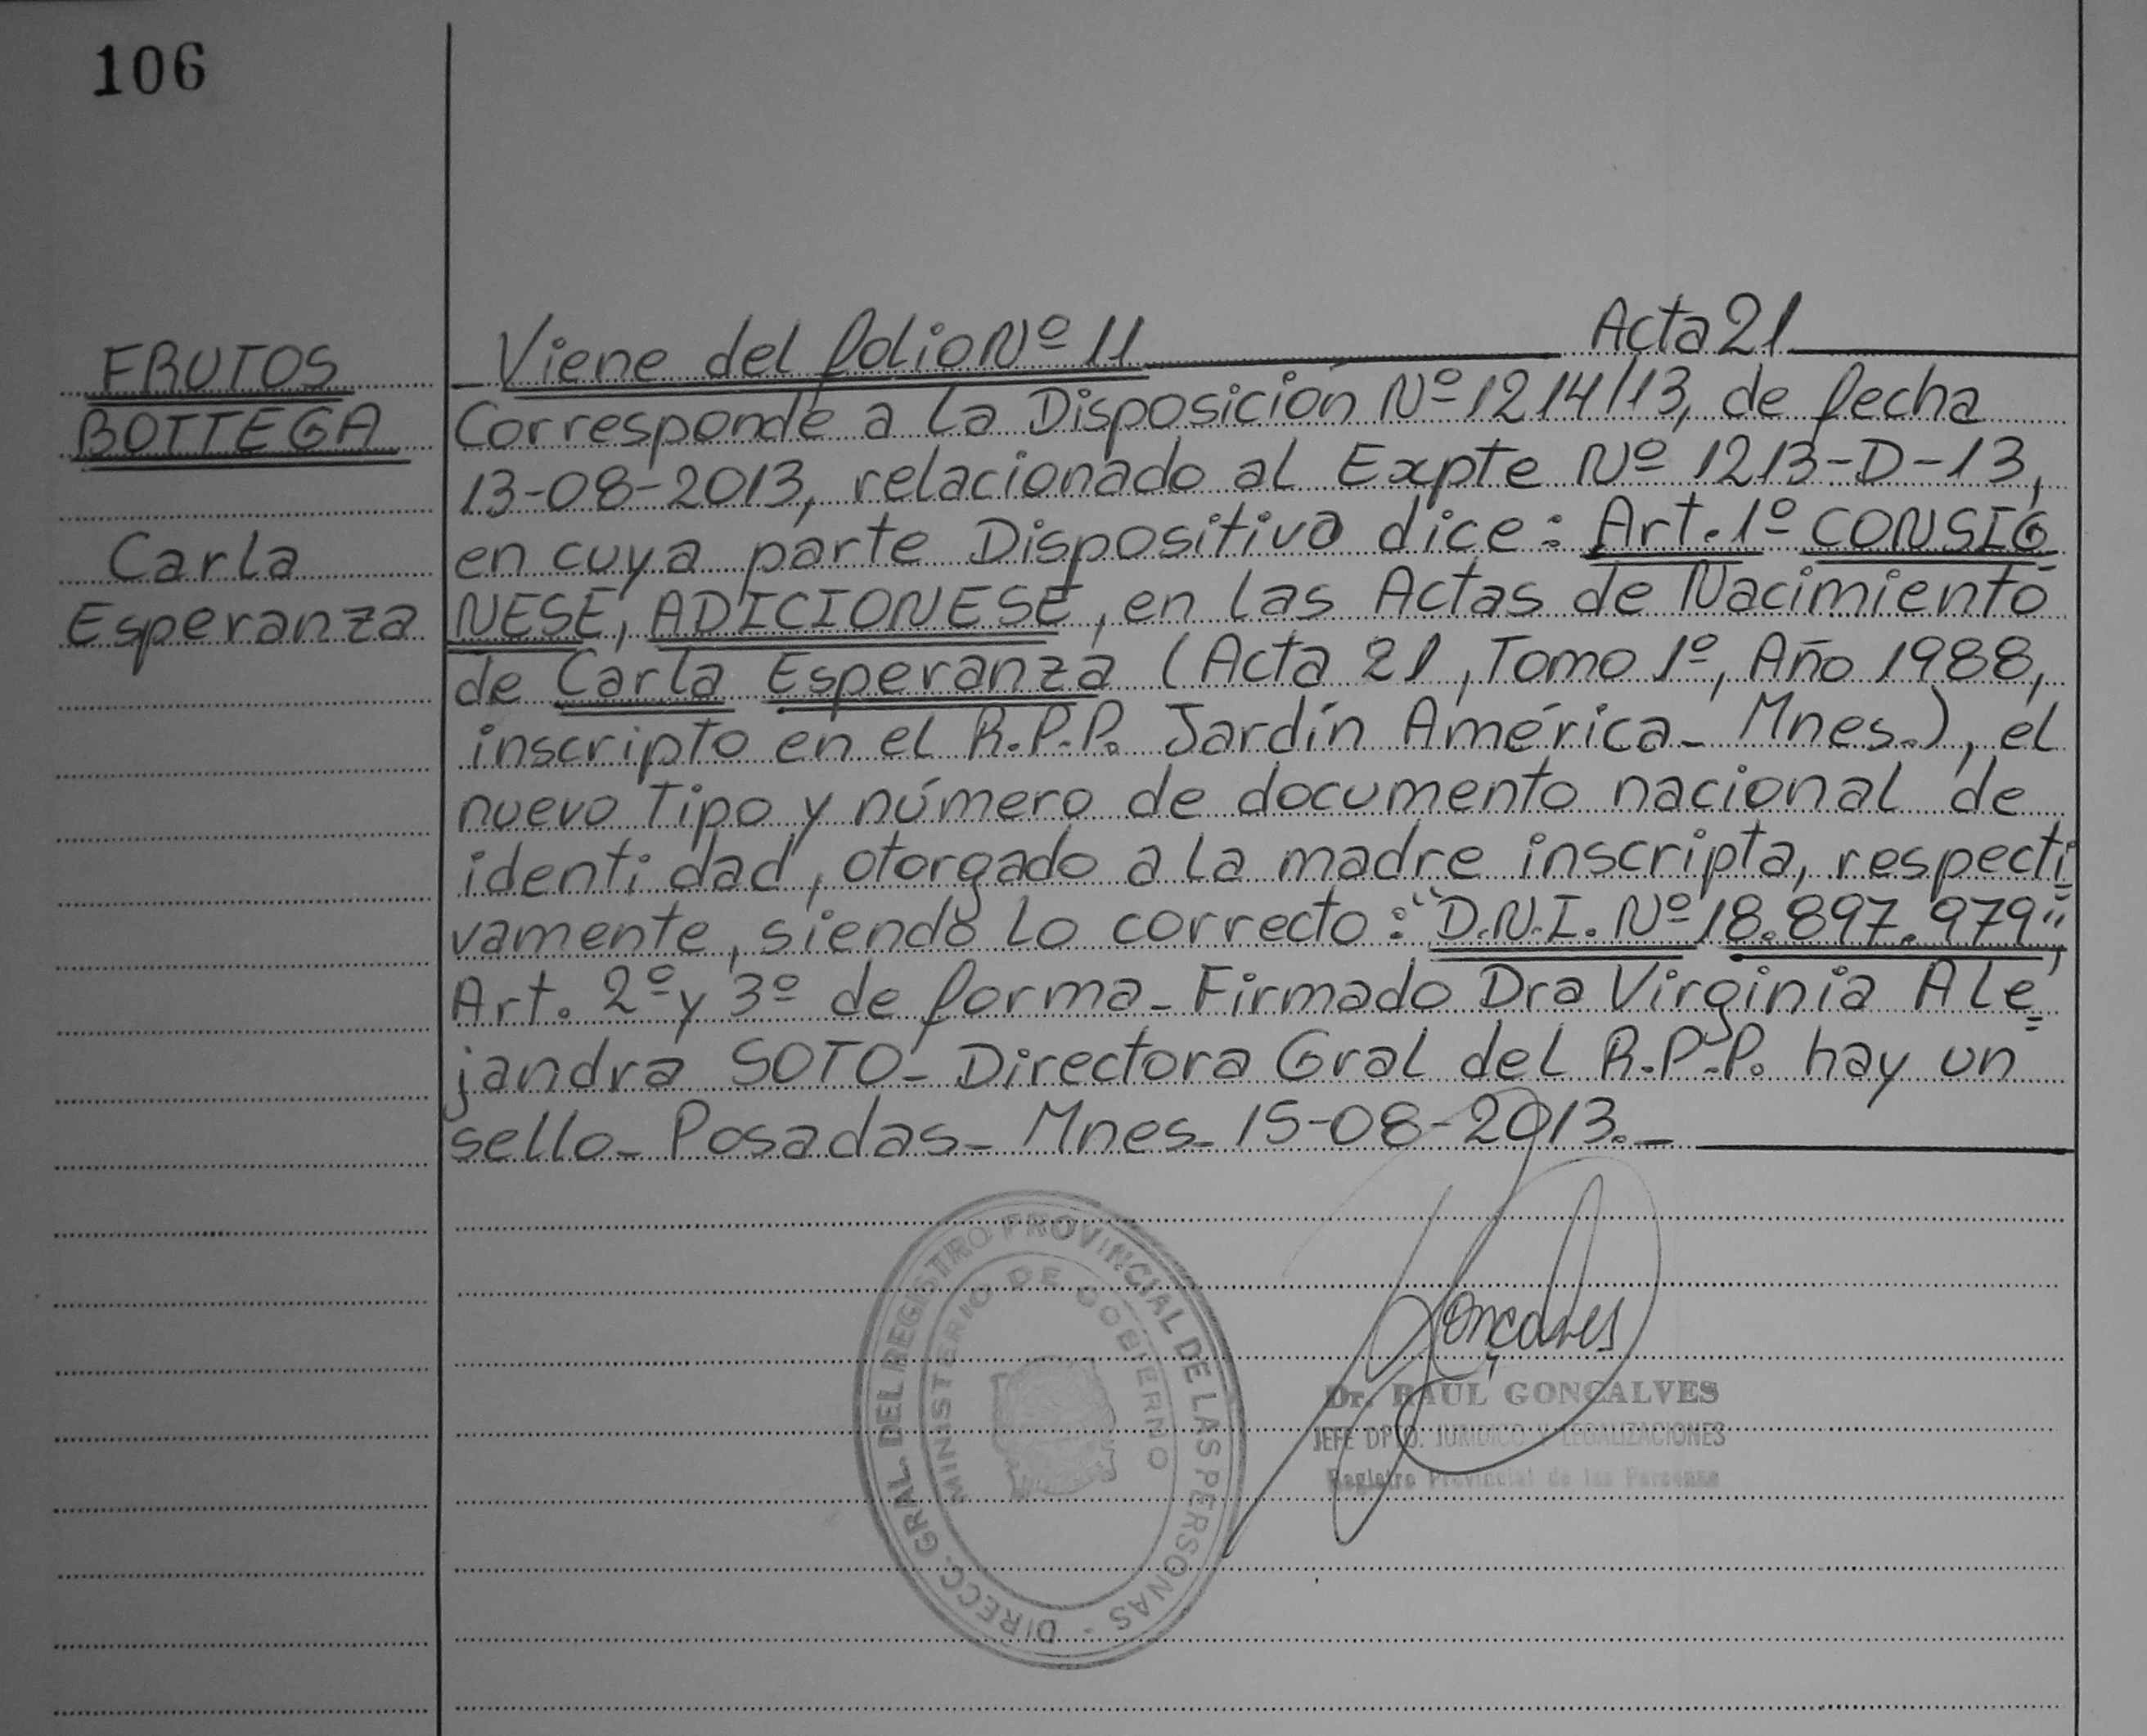 106
FRUTOS
BOTTEGA
Carla
Esperanza
Viene del folio Nº 11 Acta 21
Corresponde a la Disposición Nº 1214/13, de fecha
13-08-2013, relacionado al Expte Nº 1213-D-13,
en cuya parte Dispositiva dice: Art. 1º CONSIG
NESE, ADICIONESE, en las Actas de Nacimiento
de Carla Esperanza (Acta 21, Tomo 1º, Año 1988,
inscripto en el R.P.P. Jardín América- Mnes.), el
nuevo Tipo y número de documento nacional de
identidad, otorgado a la madre inscripta, respecti=
vamente, siendo lo correcto: "D.N.I. Nº 18.897.979",
Art. 2º y 3º de forma- Firmado Dra Virginia Ale=
jandra SOTO- Directora Gral del R.P.P. hay un
sello- Posadas- Mnes- 15-08-2013.-
DIRECC. GRAL. DEL REGISTRO PROVINCIAL DE LAS PERSONAS -
MINISTERIO DE GOBIERNO
Gonçalves
Dr. RAUL GONÇALVES
JEFE DPTO. JURIDICO Y LEGALIZACIONES
Registro Provincial de las Personas